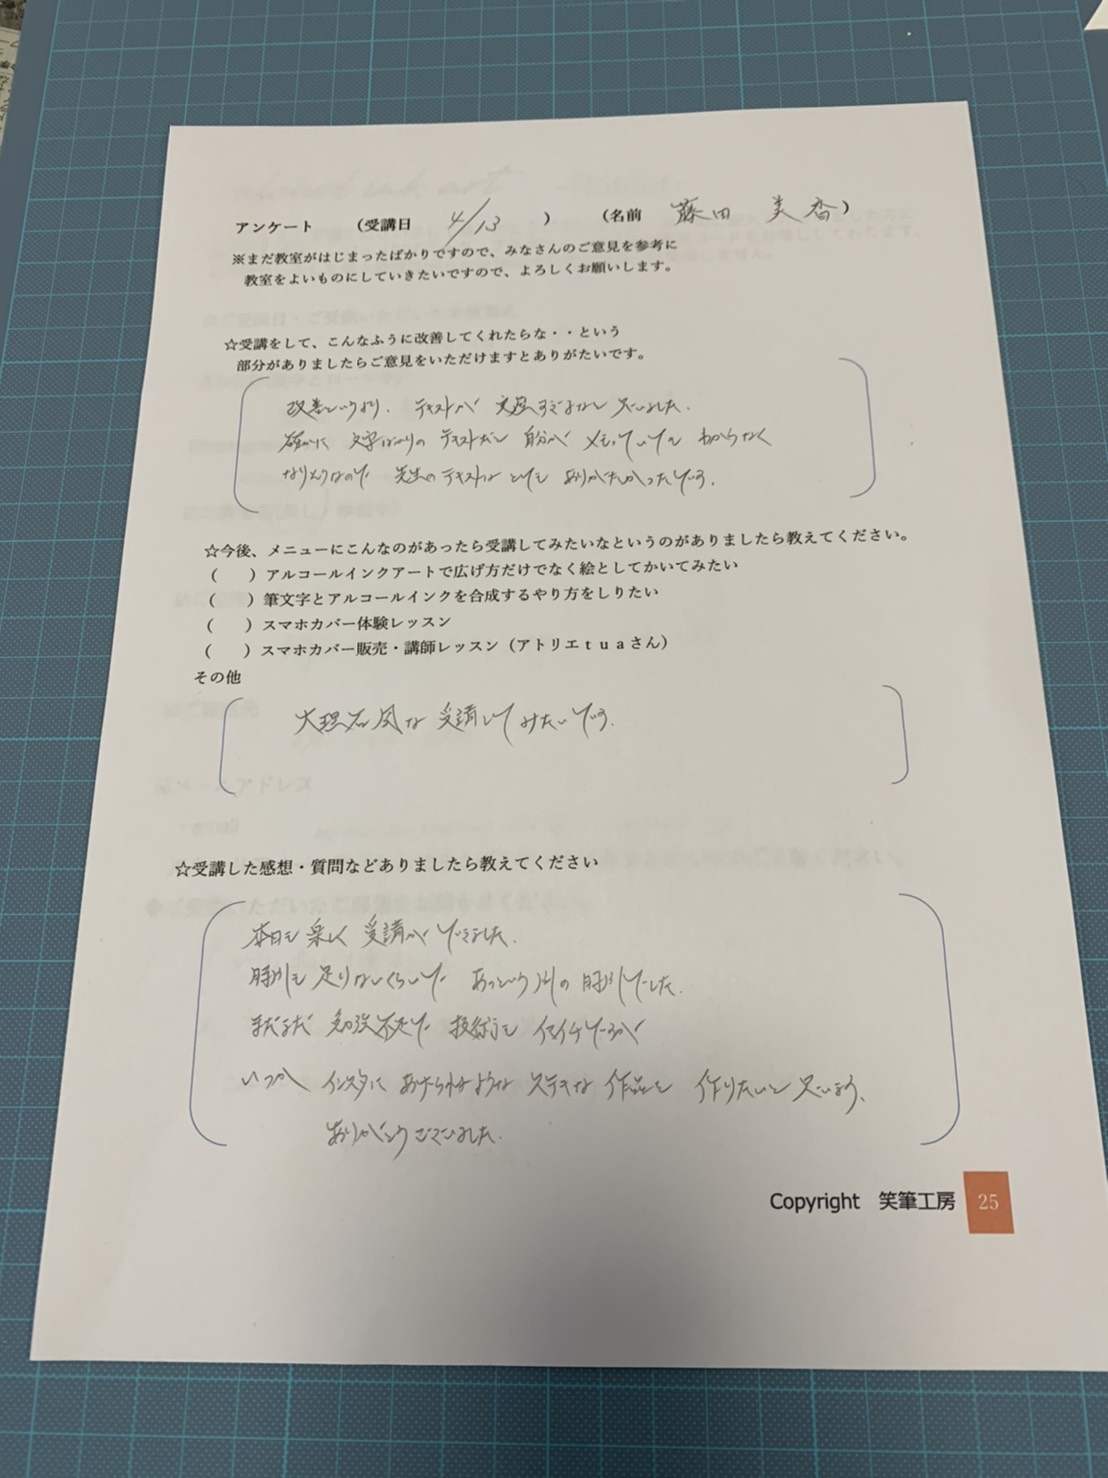 アンケート （受講日 4/13 ） （名前 藤田 美香）
※まだ教室がはじまったばかりですので、みなさんのご意見を参考に
教室をよいものにしていきたいですので、よろしくお願いします。
☆受講をして、こんなふうに改善してくれたらな・・という
部分がありましたらご意見をいただけますとありがたいです。
改善というより、テキストが 完璧すぎるなと 思いました。
確かに 文字ばかりの テキストだと 自分が メモっていても わからなく
なりそうなので 先生の テキストは とても ありがたかったです。
☆今後、メニューにこんなのがあったら受講してみたいなというのがありましたら教えてください。
（ ）アルコールインクアートで広げ方だけでなく絵としてかいてみたい
（ ）筆文字とアルコールインクを合成するやり方をしりたい
（ ）スマホカバー体験レッスン
（ ）スマホカバー販売・講師レッスン（アトリエｔｕａさん）
その他
大理石風な 受講してみたいです。
☆受講した感想・質問などありましたら教えてください
本日も 楽しく 受講が できました。
時間も 足りないくらいで あっという間の 時間でした。
まだまだ 勉強不足で 技術も イマイチですが
いつか インスタに あげられるような ステキな 作品を 作りたいと 思います。
ありがとうございました。
Copyright 笑筆工房 25